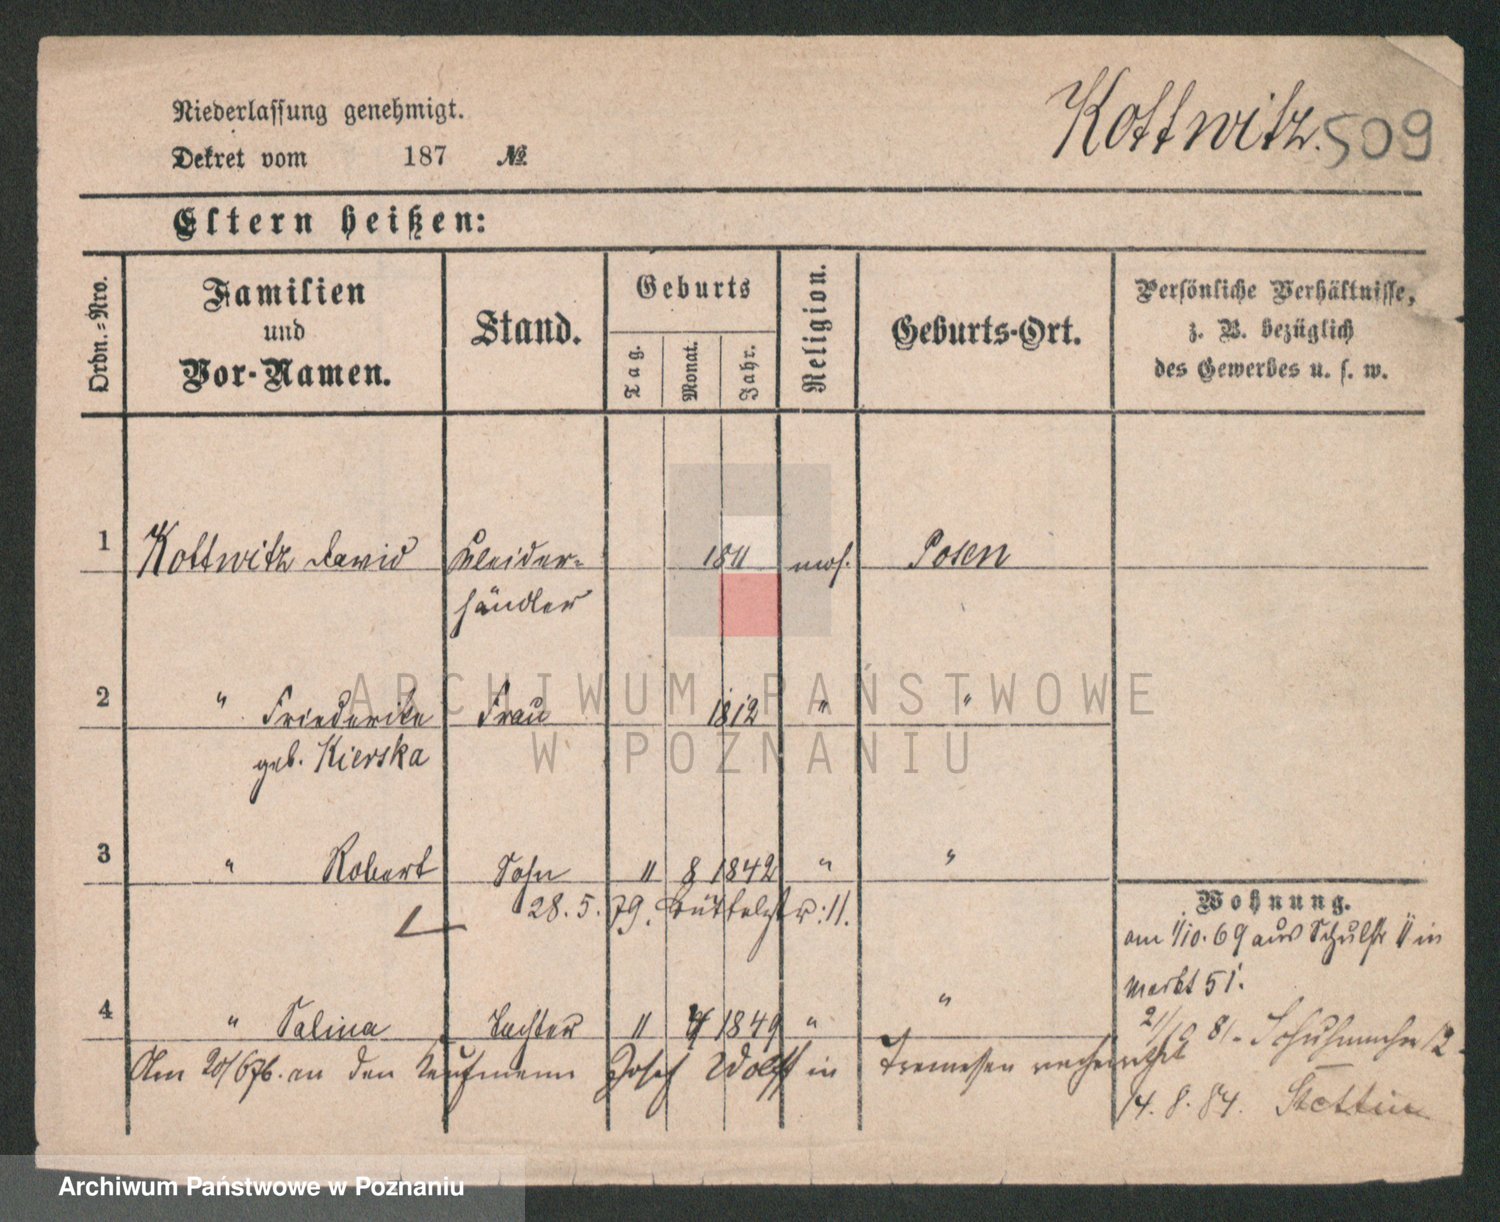 Niederlassung genehmigt.
Dekret vom 187 №
Kottwitz. 509
Eltern heißen:
Ordn.-Nro.
Familien und Vor-Namen.
Stand.
Geburts
Tag.
Monat.
Jahr.
Religion.
Geburts-Ort.
Persönliche Verhältnisse,
z. B. bezüglich
des Gewerbes u. s. w.
1 Kottwitz David Kleider- 1811 mos. Posen
händler
2 " Friederike Frau 1812 " "
geb. Kierska
3 " Robert Sohn 11 8 1842 " "
28. 5. 79. Büttelstr: 11.
Wohnung.
am 1/10. 69 aus Schulstr 11 in
Markt 51.
4 " Salina Tochter 11 4 1849 " "
Am 20/6 76. an den Kaufmann Josef Wolff in Tremessen verheirathet
81. 12
14. 8. 84. Stettin
ARCHIWUM PAŃSTWOWE
W POZNANIU
Archiwum Państwowe w Poznaniu